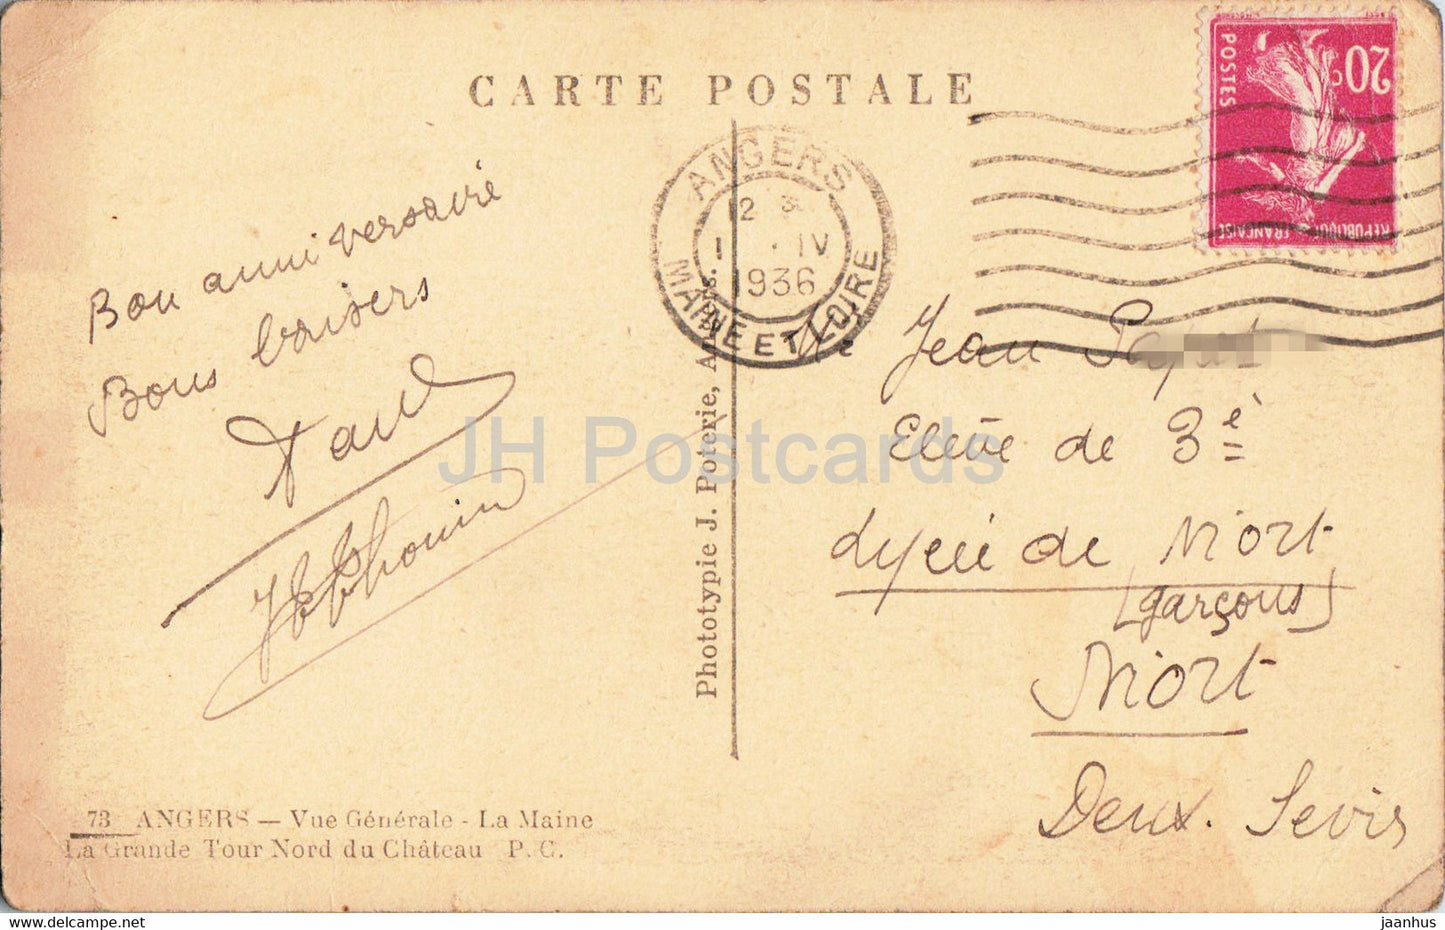 CARTE POSTALE
ANGERS
12
1 · IV
1936
MAINE ET LOIRE
20c
POSTES
REPUBLIQUE FRANÇAISE
Bon anniversaire
Bons baisers
Jean
Elève de 3è
Lycée de Niort
(garçons)
Niort
Deux. Sèvres
Phototypie J. Poterie, Angers.
73 ANGERS — Vue Générale - La Maine
La Grande Tour Nord du Château P. C.
JH Postcards
jaanhus